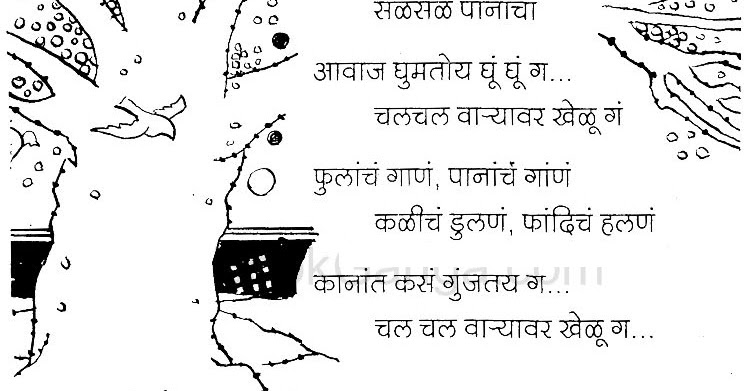 सळसळ पानांचा
आवाज घुमतोय घूं घूं ग...
चलचल वाऱ्यावर खेळू गं
फुलांचं गाणं, पानांचं गांणं
कळीचं डुलणं, फांदिचं हलणं
कानांत कसं गुंजतय ग...
चल चल वाऱ्यावर खेळू ग...